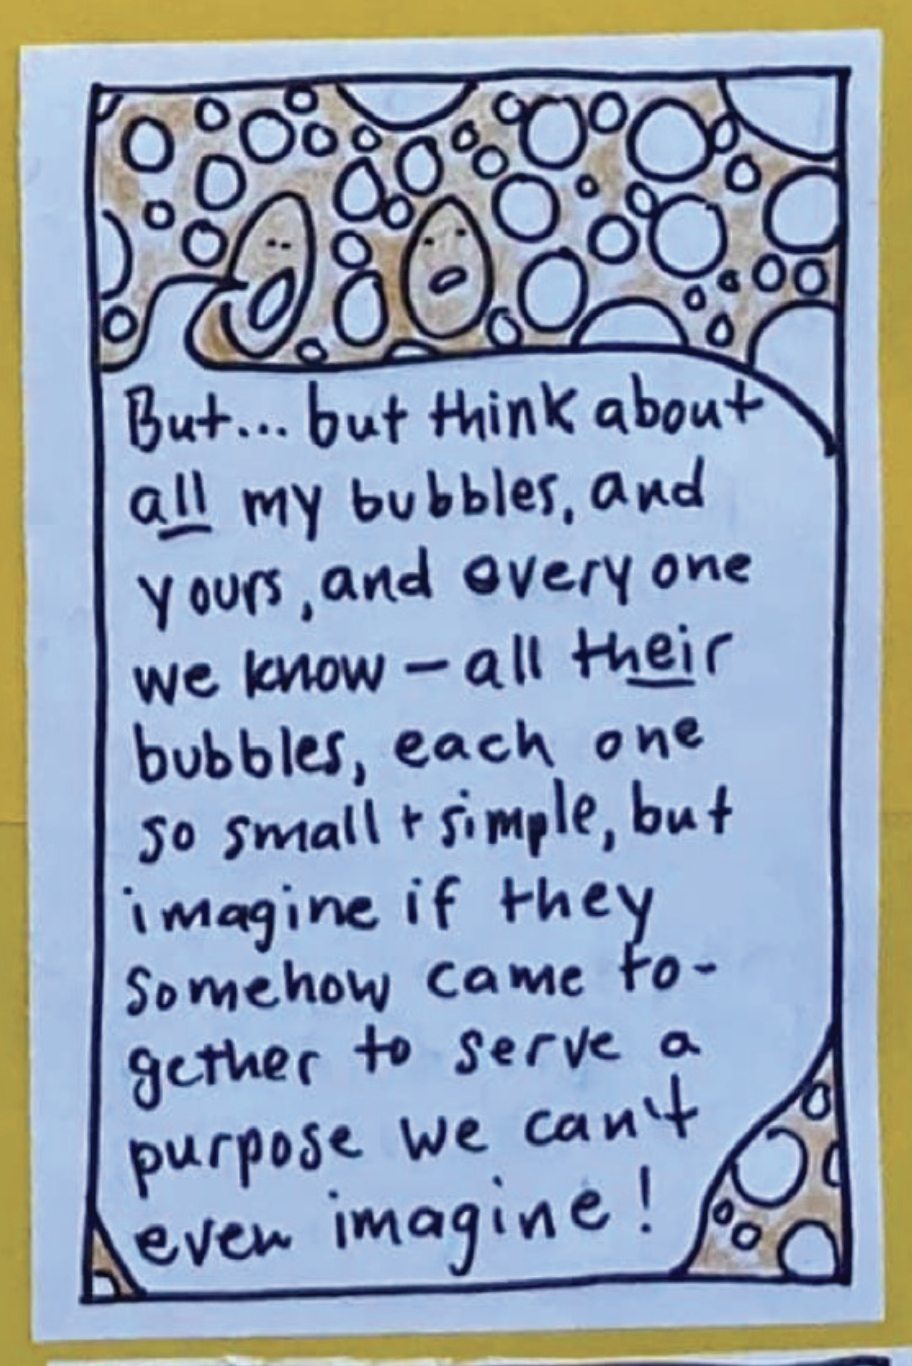 But... but think about
all my bubbles, and
yours, and everyone
we know – all their
bubbles, each one
so small + simple, but
imagine if they
somehow came to-
gether to serve a
purpose we can't
even imagine!